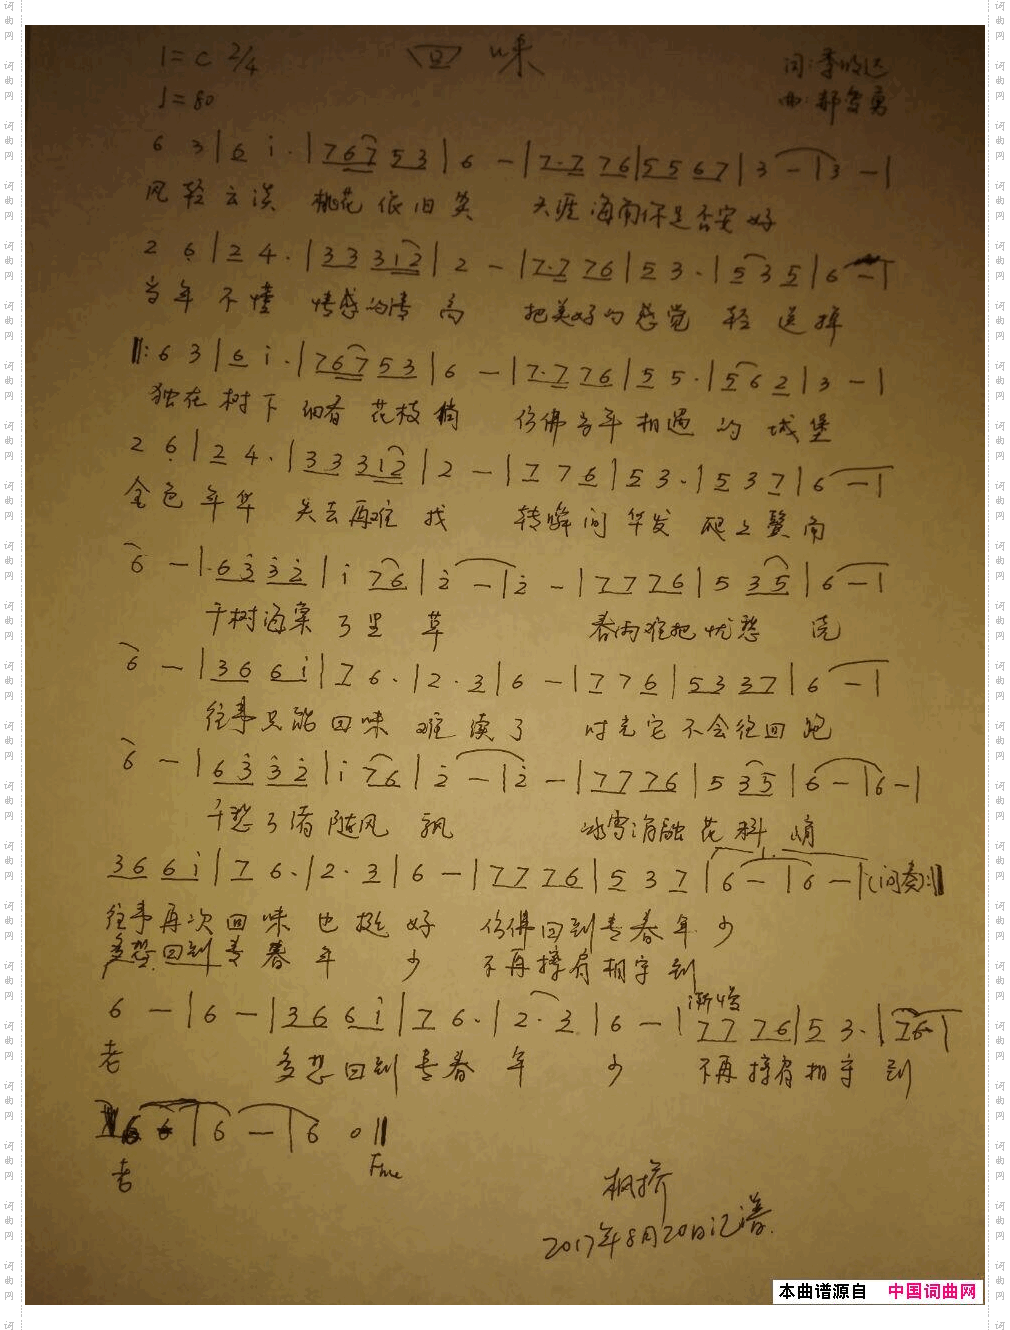 1=C 2/4 回味 词:李
♩=80 曲:郝
6 3|6 i·|76753|6 -|7·7 76|5567|3 -|3 -|
风轻云淡 桃花依旧笑 天涯海角你是否安好
2 6|2 4·|33312|2 -|7·7 76|5 3·|535|6 -|
当年不懂 情感的清高 把美好的感觉 轻送掉
‖:6 3|6 i·|76753|6 -|7·7 76|5 5·|562|3 -|
独在树下 细看花枝梢 仿佛当年相遇的城堡
2 6|2 4·|33312|2 -|7 7 6|5 3·|5 3 7|6 -|
金色年华 失去再难找 转瞬间华发 爬上鬓角
6 -|6 3 3 2|i 76|2 -|2 -|7776|5 35|6 -|
千树海棠了里草 春雨难把忧愁 浇
6 -|366i|7 6·|2·3|6 -|7 7 6|5337|6 -|
往事只能回味 难续了 时光它不会往回跑
6 -|6 3 3 2|i 76|2 -|2 -|7776|5 35|6 -|6 -|
千愁了绪随风飘 冰雪消融花料峭
366i|7 6·|2·3|6 -|7776|5 3 7|6 -|6 -|(间奏):‖
往事再次回味也挺好 仿佛回到青春年少
多想回到青春年少 不再擦肩相守到
6 -|6 -|366i|7 6·|2·3|6 -|渐慢 7776|5 3·|76·|
老 多想回到青春年少 不再擦肩相守到
6 6|6 -|6 0‖
老 Fine
枫桥
2017年8月20日记谱.
本曲谱源自 中国词曲网
词曲网